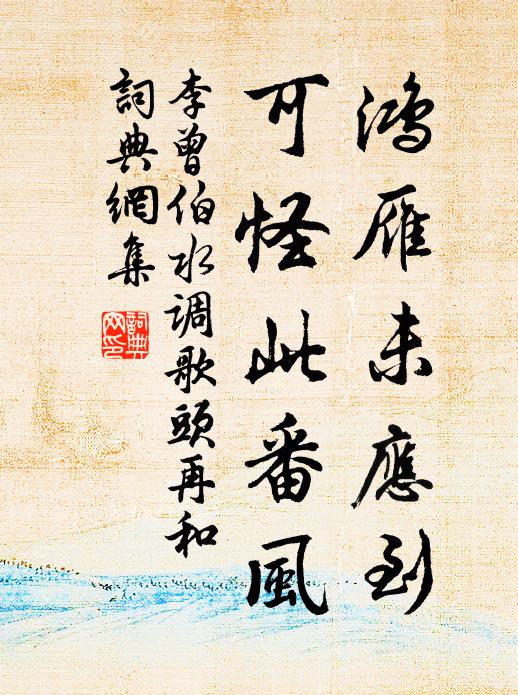 鴻雁未應到
可怪此番風
李曾伯水调歌頭再和
詞典網集
詞典网印